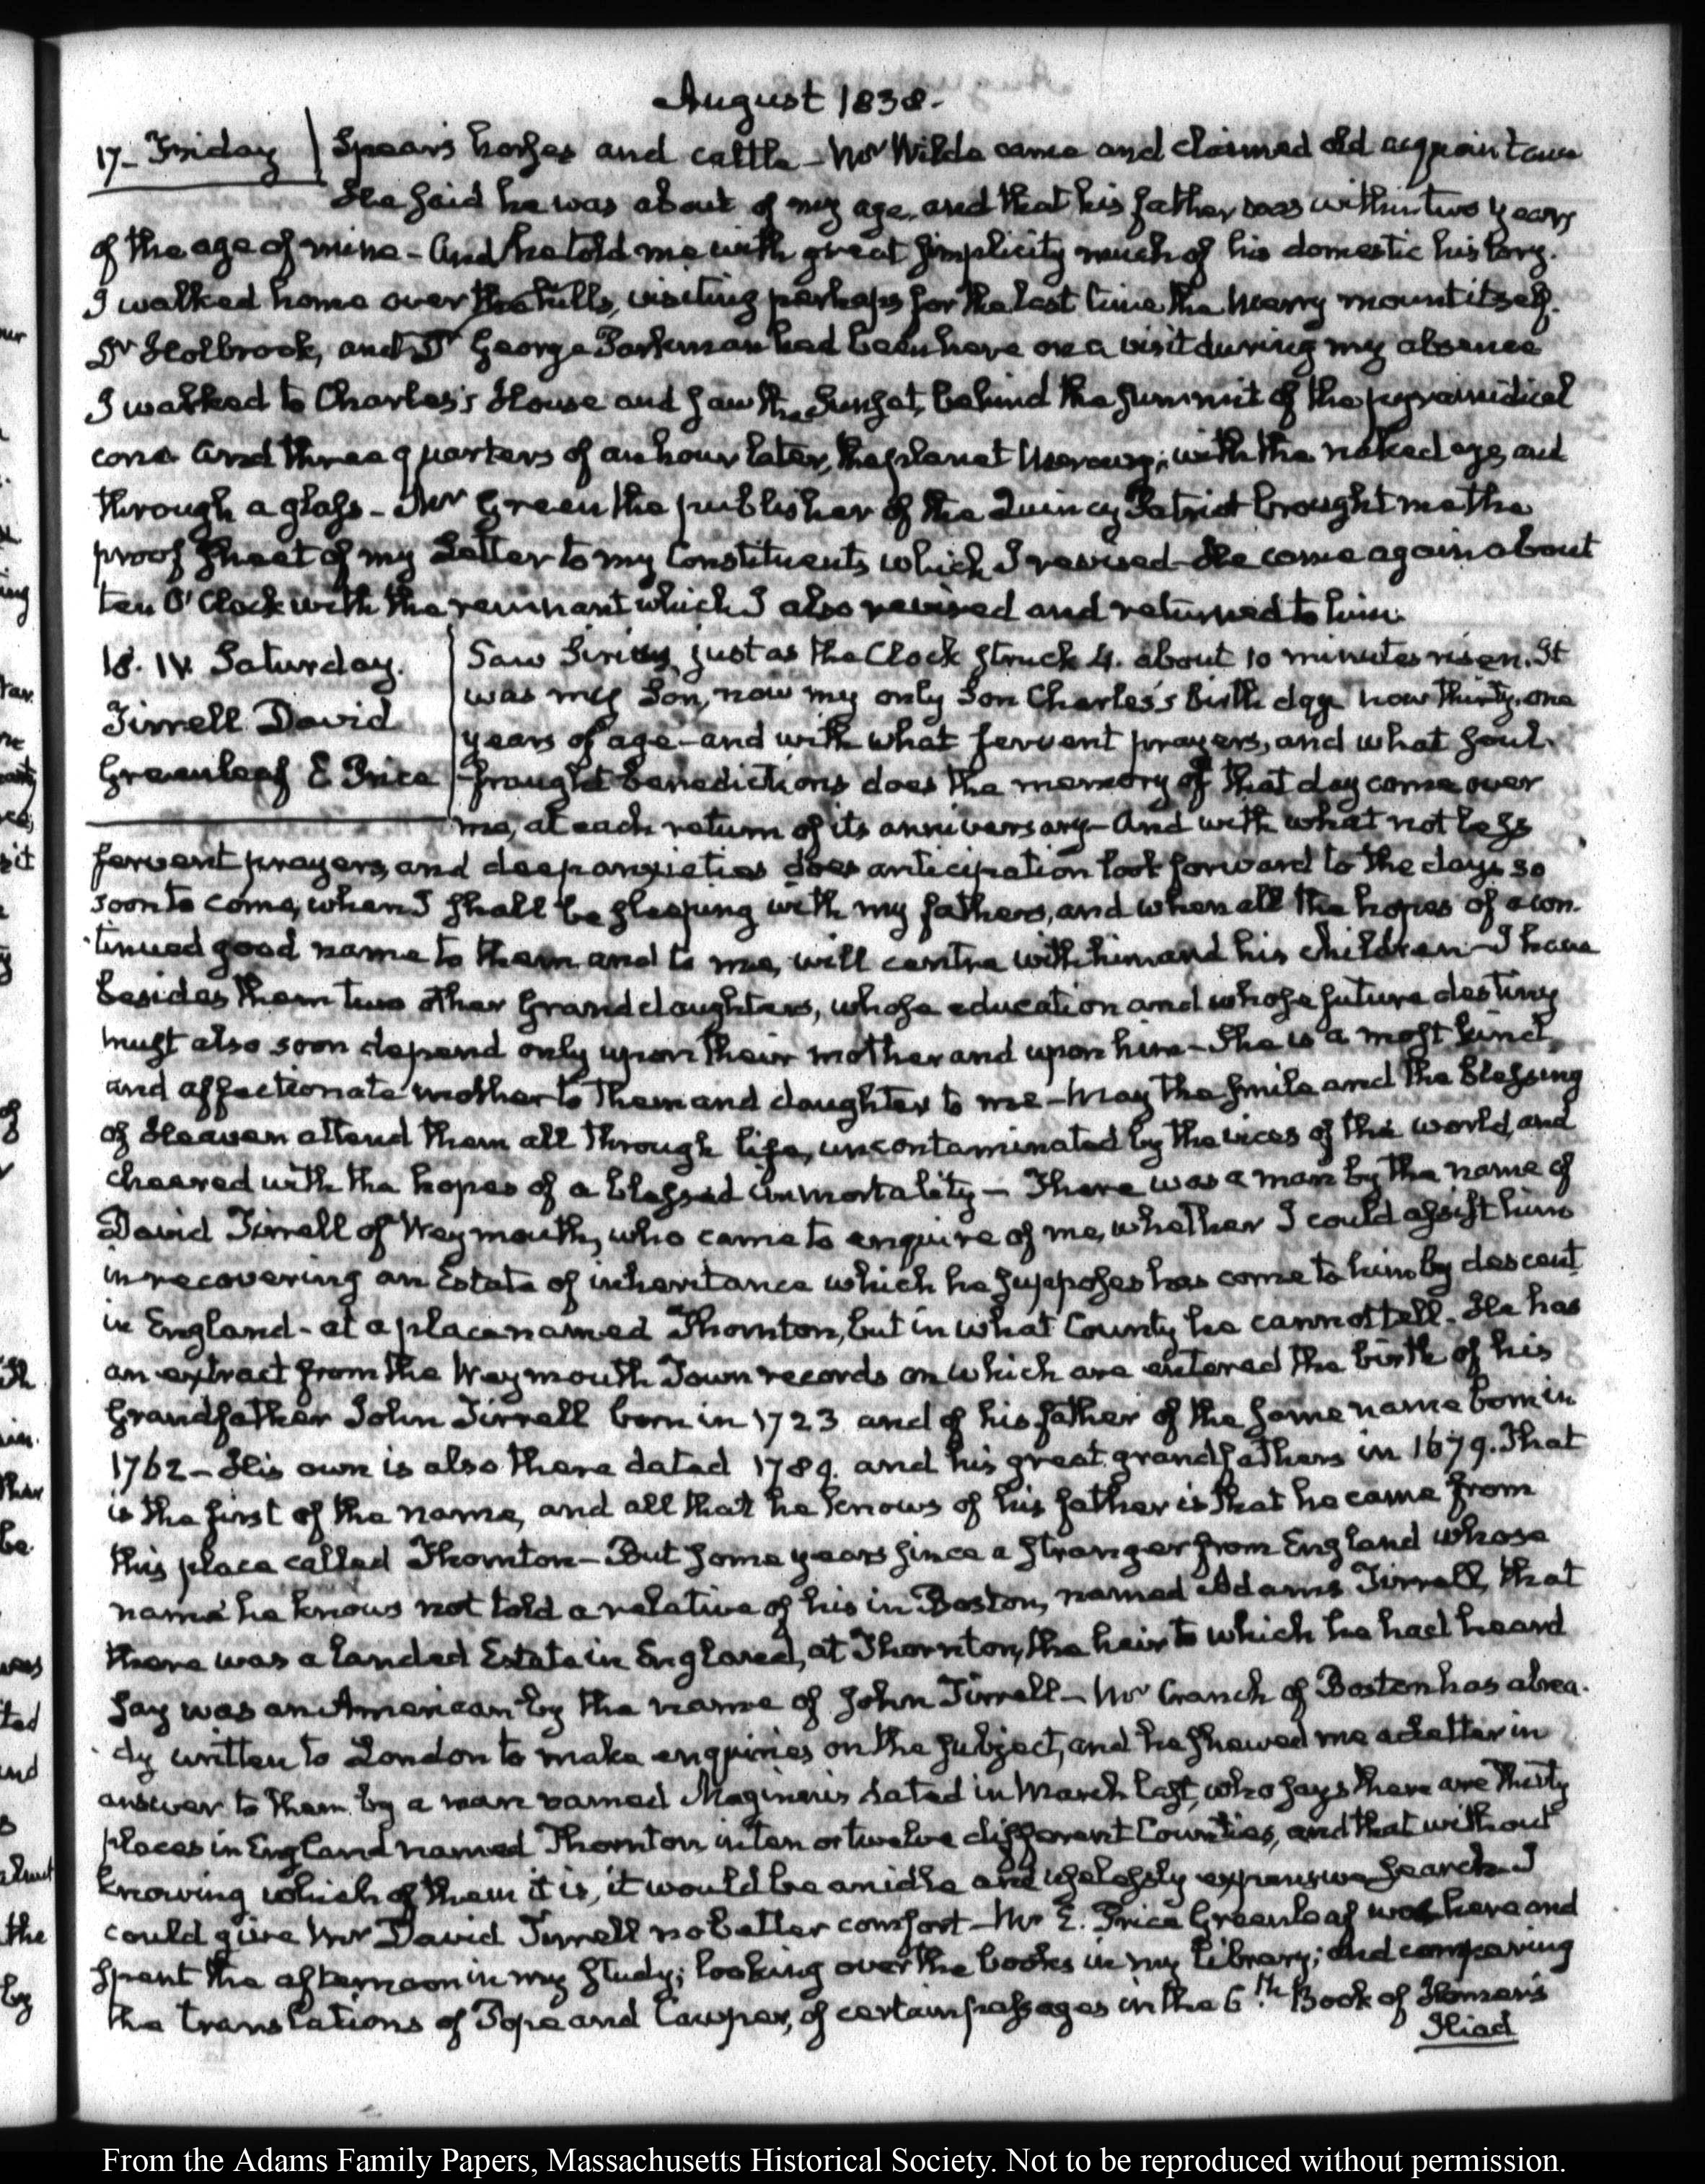 August 1838.
17. Friday Spear's horses and cattle – Mr Wilde came and claimed old acquaintance
He said he was about of my age, and that his father was within two years
of the age of mine – And he told me with great simplicity much of his domestic history.
I walked home over the hills, visiting perhaps for the last time the Merry mount itself.
Dr Holbrook, and Dr George Parkman had been here on a visit during my absence
I walked to Charles's House and saw the Sunset, behind the summit of the pyramidical
cone. And three quarters of an hour later, the planet Mercury; with the naked eye, and
through a glass – Mr Green the publisher of the Quincy Patriot brought me the
proof sheet of my Letter to my Constituents which I revised – He came again about
ten O'Clock with the remnant which I also revised and returned to him.
18. IV. Saturday.
Tirrell David
Greenleaf E Price
Saw Sirius, just as the Clock struck 4. about 10 minutes risen. It
was my Son, now my only Son Charles's birth day now thirty-one
years of age – and with what fervent prayers, and what soul-
fraught benedictions does the memory of that day come over
me, at each return of its anniversary – And with what not less
fervent prayers, and deep anxieties does anticipation look forward to the days so
soon to come, when I shall be sleeping with my fathers, and when all the hopes of a con-
tinued good name to them and to me, will centre with him and his children – I have
besides them two other Grand daughters, whose education and whose future destiny
must also soon depend only upon their mother and upon him – She is a most kind,
and affectionate mother to them and daughter to me – May the smile and the blessing
of Heaven attend them all through life, uncontaminated by the vices of the world, and
cheered with the hopes of a blessed immortality – There was a man by the name of
David Tirrell of Weymouth, who came to enquire of me, whether I could assist him
in recovering an Estate of inheritance which he supposes has come to him by descent
in England – at a place named Thornton, but in what County he cannot tell. He has
an extract from the Weymouth Town records on which are entered the birth of his
Grandfather John Tirrell born in 1723 and of his father of the same name born in
1762 – His own is also there dated 1789. and his great grandfathers in 1679. That
is the first of the name, and all that he knows of his father is that he came from
this place called Thornton – But some years since a stranger from England whose
name he knows not told a relative of his in Boston, named Adams Tirrell, that
there was a landed Estate in England, at Thornton, the heir to which he had heard
say was an American by the name of John Tirrell – Mr Cranch of Boston has alrea-
dy written to London to make enquiries on the subject, and he shewed me a Letter in
answer to them by a man named Maginnis dated in March last, who says there are thirty
places in England named Thornton, in ten or twelve different Counties, and that without
knowing which of them it is, it would be an idle and uselessly expensive search. I
could give Mr David Tirrell no better comfort – Mr E. Price Greenleaf was here and
spent the afternoon in my study; looking over the books in my library; and comparing
the translations of Pope and Cowper, of certain passages in the 6th. Book of Homer's
Iliad
From the Adams Family Papers, Massachusetts Historical Society. Not to be reproduced without permission.